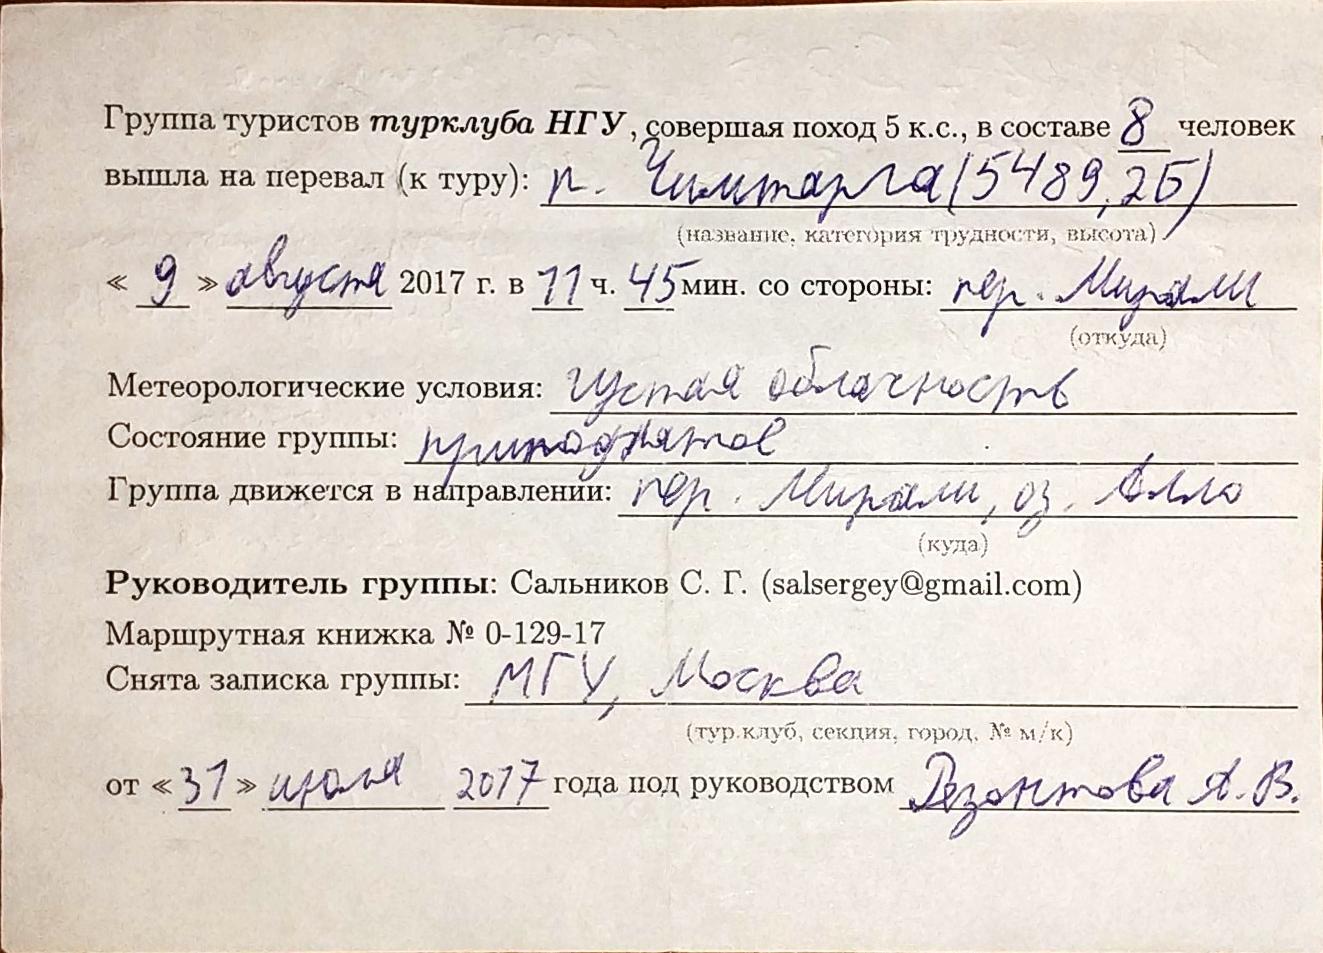 Группа туристов турклуба НГУ, совершая поход 5 к.с., в составе 8 человек
вышла на перевал (к туру): п. Чимтарга (5489, 2Б)
(название, категория трудности, высота)
« 9 » августа 2017 г. в 11 ч. 45 мин. со стороны: пер. Мирали
(откуда)
Метеорологические условия: густая облачность
Состояние группы: приподнятое
Группа движется в направлении: пер. Мирали, оз. Алло
(куда)
Руководитель группы: Сальников С. Г. (salsergey@gmail.com)
Маршрутная книжка № 0-129-17
Снята записка группы: МГУ, Москва
(тур.клуб, секция, город, № м/к)
от « 31 » июля 2017 года под руководством Дезонтова А. В.